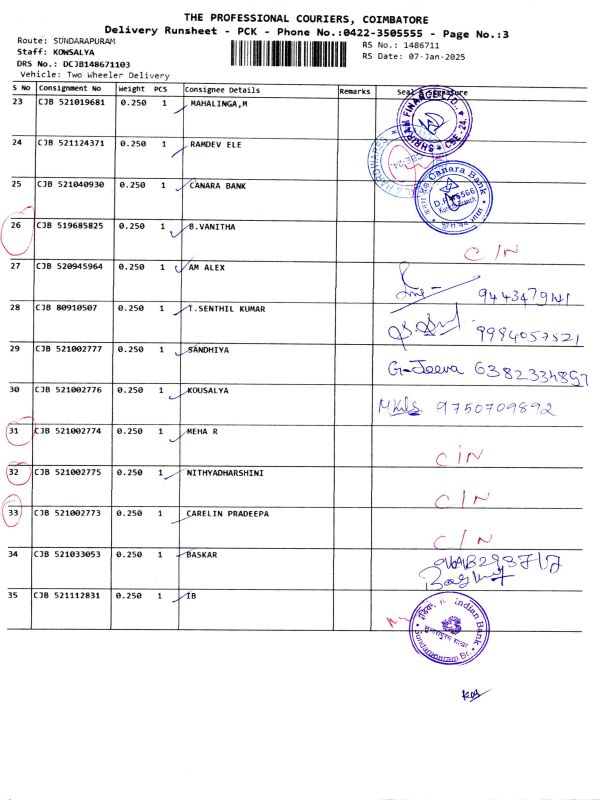 THE PROFESSIONAL COURIERS, COIMBATORE
Delivery Runsheet - PCK - Phone No.:0422-3505555 - Page No.:3
Route: SUNDARAPURAM
RS No.: 1486711
Staff: KOWSALYA
RS Date: 07-Jan-2025
DRS No.: DCJB148671103
Vehicle: Two Wheeler Delivery
S No Consignment No Weight PCS Consignee Details Remarks Seal & Signature
23 CJB 521019681 0.250 1 MAHALINGA,M
SHRIRAM FINANCE LTD., CBE-24.
24 CJB 521124371 0.250 1 RAMDEV ELE
HARDWARES CBE-24
25 CJB 521040930 0.250 1 CANARA BANK
Canara Bank
26 CJB 519685825 0.250 1 B.VANITHA C/N
27 CJB 520945964 0.250 1 AM ALEX
28 CJB 80910507 0.250 1 T.SENTHIL KUMAR 9994057521
29 CJB 521002777 0.250 1 SANDHIYA G-Jeeva 6382334897
30 CJB 521002776 0.250 1 KOUSALYA 9750709892
31 CJB 521002774 0.250 1 MEHA R C/N
32 CJB 521002775 0.250 1 NITHYADHARSHINI C/N
33 CJB 521002773 0.250 1 CARELIN PRADEEPA C/N
34 CJB 521033053 0.250 1 BASKAR
35 CJB 521112831 0.250 1 IB
Indian Bank
Sundarapuram Br.